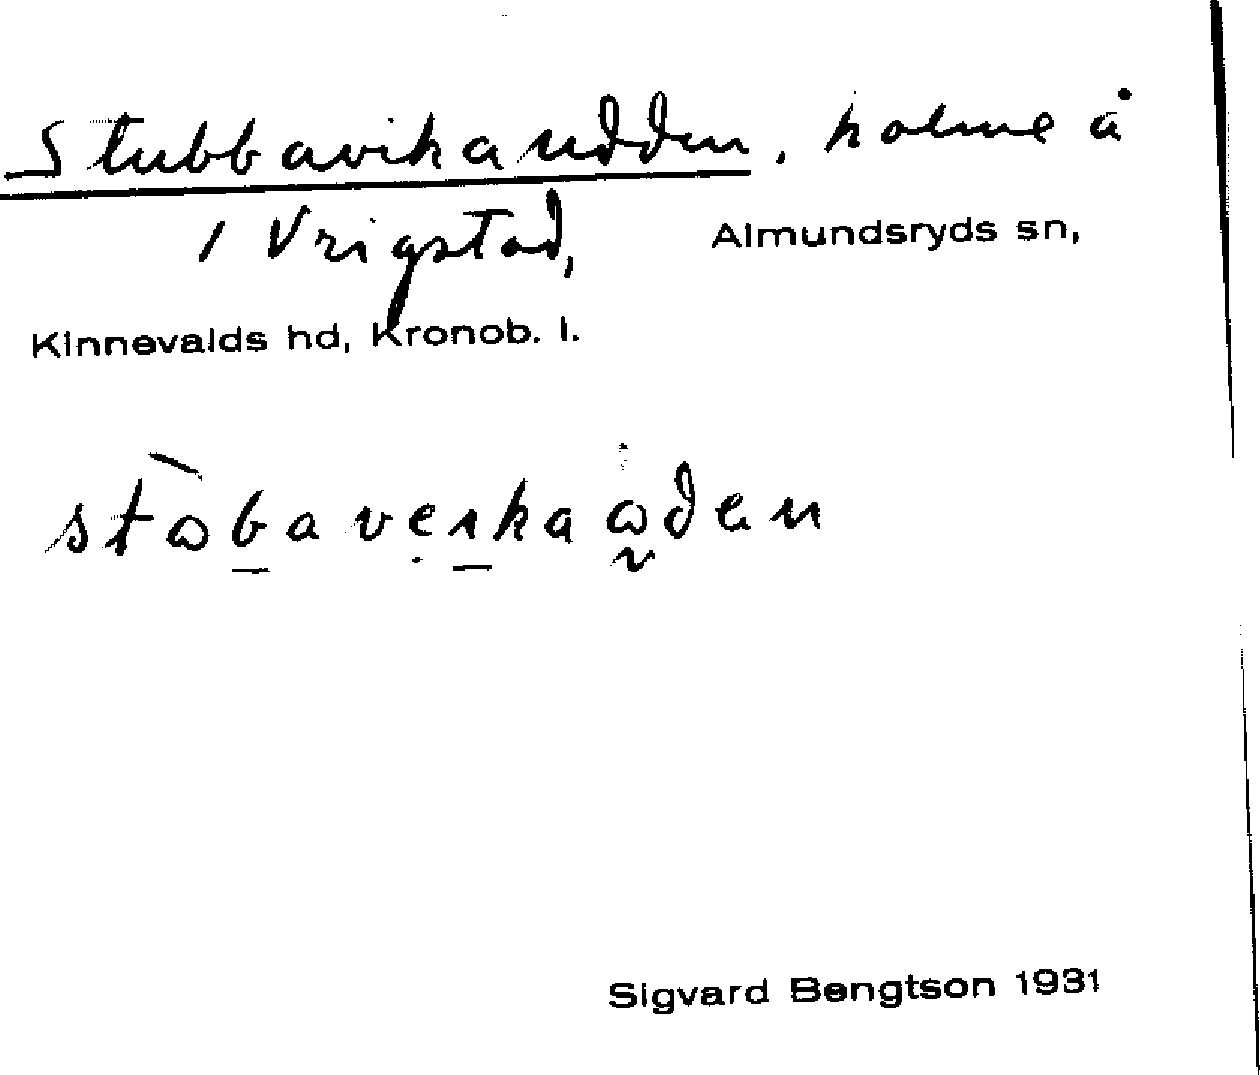 Stubbavikaudden, holme å
1 Vrigstad, Almundsryds sn,
Kinnevalds hd, Kronob. l.
Sigvard Bengtson 1931